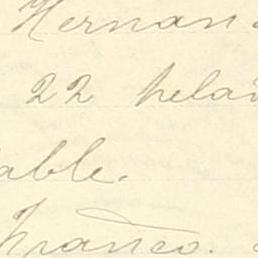 Hernan
22 helad
able.
Franco.